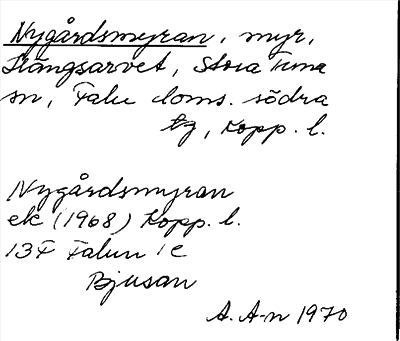 Nygårdsmyran, myr,
Stångsarvet, Stora Tuna
sn, Falu doms. södra
tg, Kopp. l.
Nygårdsmyran
ek (1968) Kopp. l.
13F Falun 1c
Bjusan
A. A-n 1970